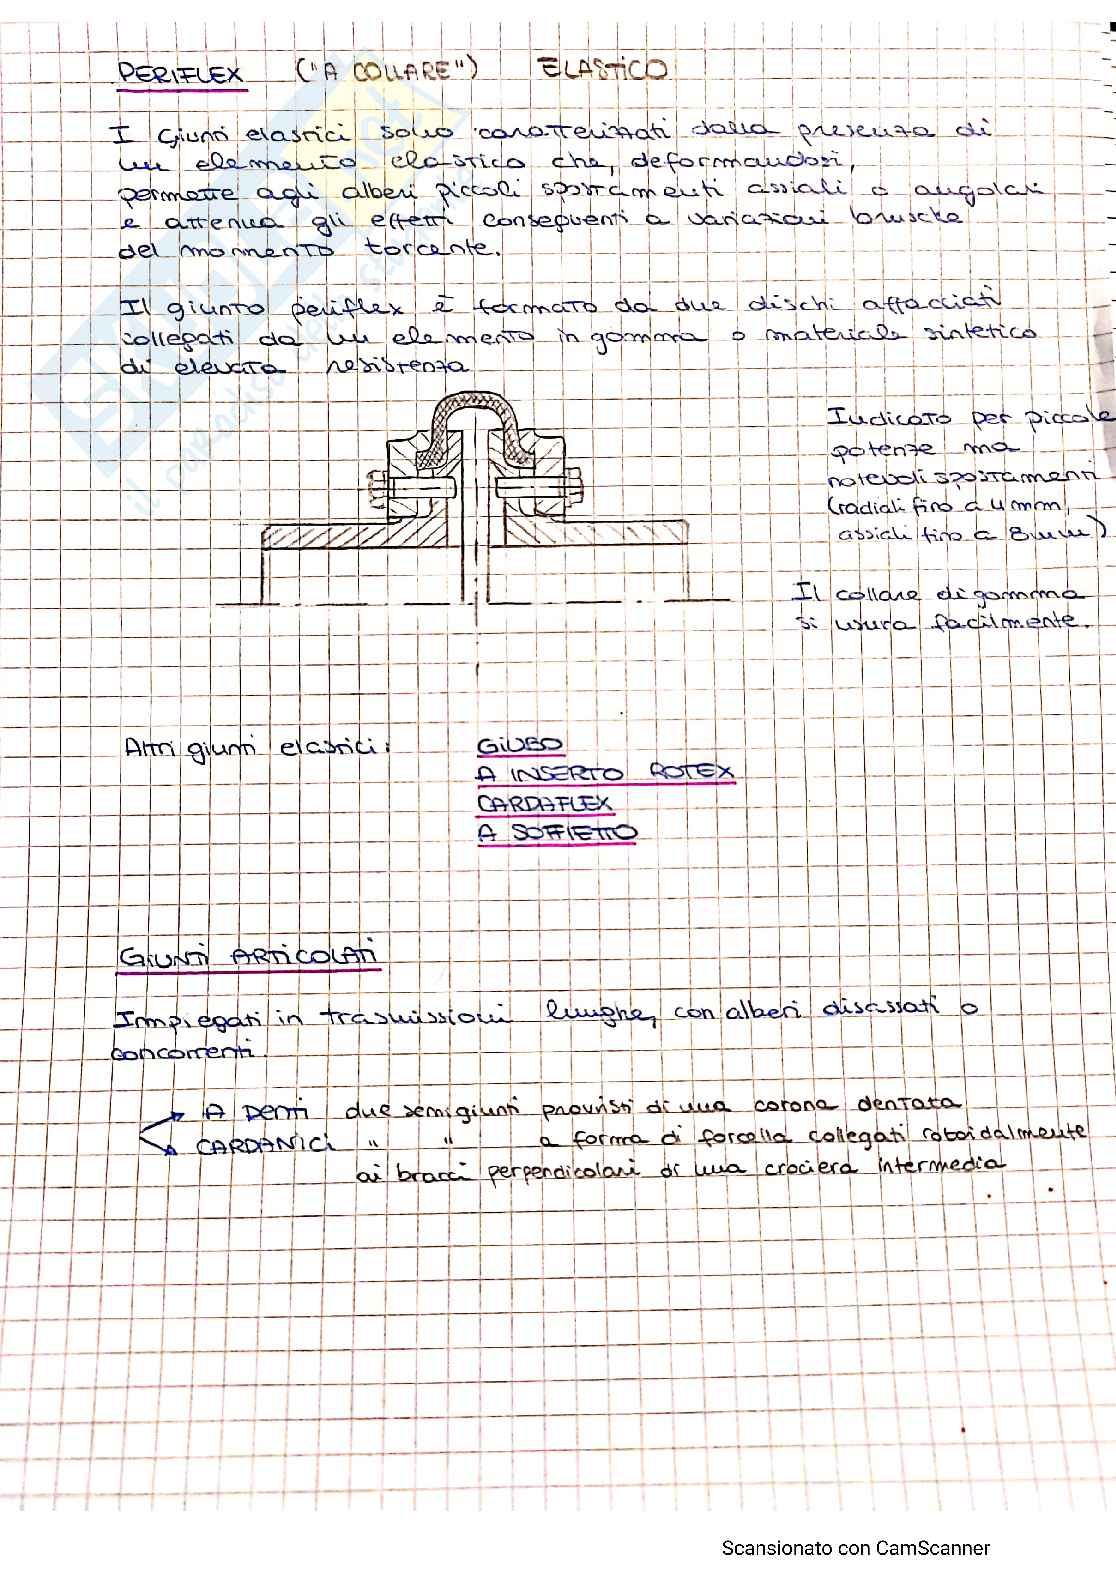 PERIFLEX ("A COLLARE") ELASTICO
I Giunti elastici sono caratterizzati dalla presenza di
un elemento elastico che, deformandosi,
permette agli alberi piccoli spostamenti assiali o angolari
e attenua gli effetti conseguenti a variazioni brusche
del momento torcente.
Il giunto periflex è formato da due dischi affacciati
collegati da un elemento in gomma o materiale sintetico
di elevata resistenza
Indicato per piccole
potenze ma
notevoli spostamenti
(radiali fino a 4 mm,
assiali fino a 8mm)
Il collare di gomma
si usura facilmente.
Altri giunti elastici:
GIUBO
A INSERTO ROTEX
CARDAFLEX
A SOFFIETTO
GIUNTI ARTICOLATI
Impiegati in trasmissioni lunghe, con alberi disassati o
concorrenti.
A DENTI due semigiunti provvisti di una corona dentata
CARDANICI " " a forma di forcella collegati rotoidalmente
ai bracci perpendicolari di una crociera intermedia
Scansionato con CamScanner